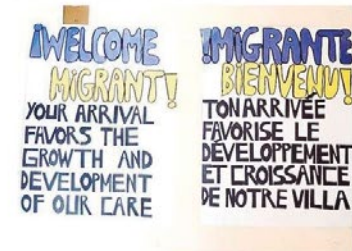 ¡WELCOME
MIGRANT!
YOUR ARRIVAL
FAVORS THE
GROWTH AND
DEVELOPMENT
OF OUR CARE
¡MIGRANTE
BIENVENU!
TON ARRIVÉE
FAVORISE LE
DÉVELOPPEMENT
ET CROISSANCE
DE NOTRE VILLA